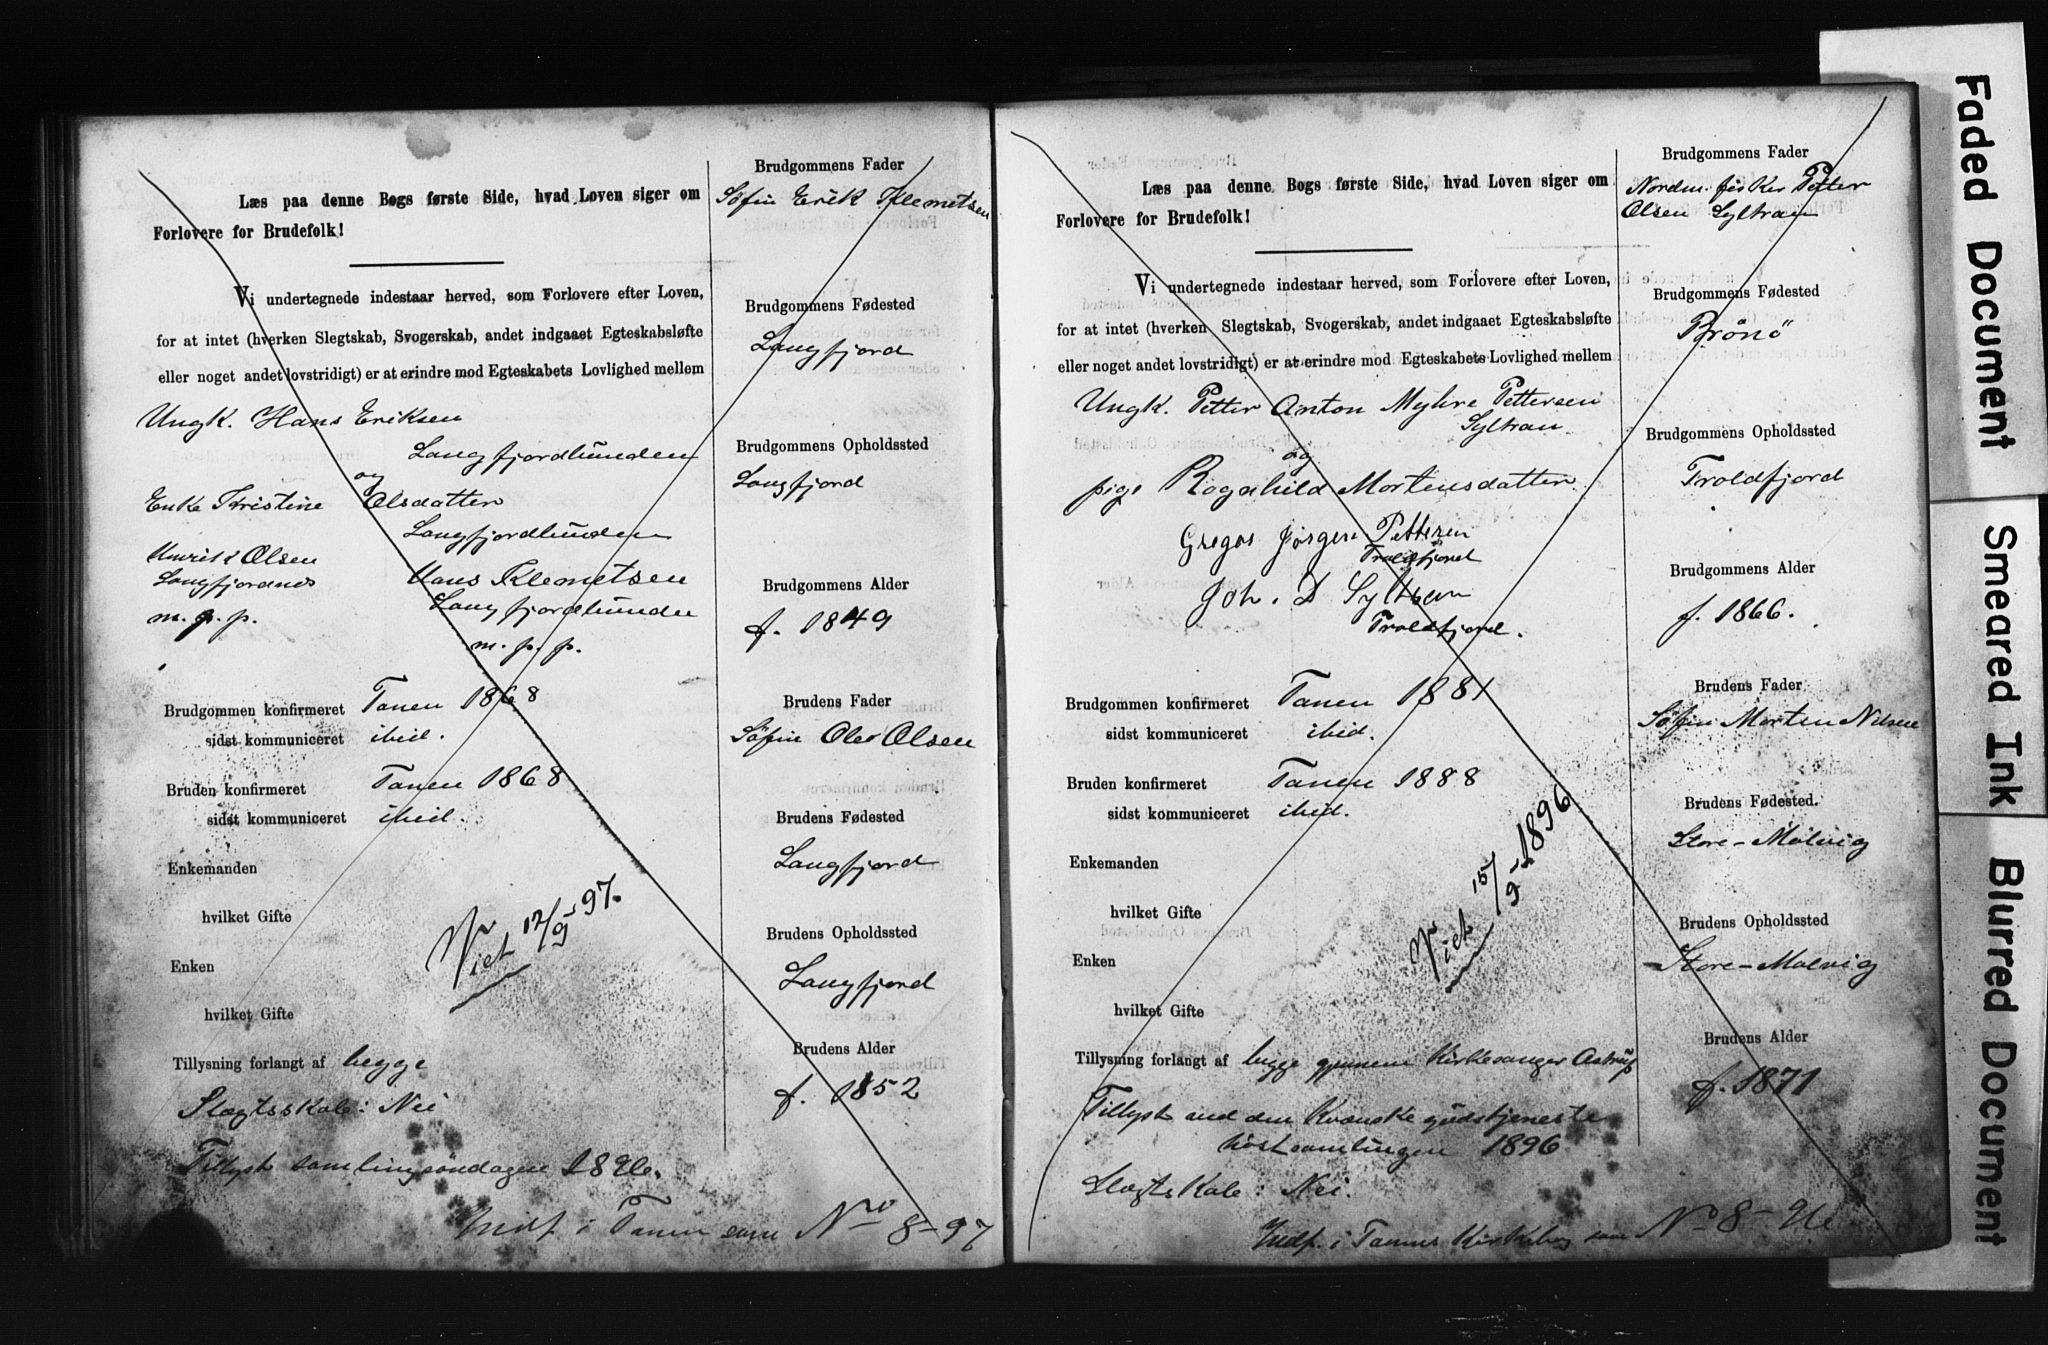 Læs paa denne Bogs første Side, hvad Loven siger om
Forlovere for Brudefolk!
Vi undertegnede indestaar herved, som Forlovere efter Loven,
for at intet (hverken Slegtskab, Svogerskab, andet indgaaet Egteskabsløfte
eller noget andet lovstridigt) er at erindre mod Egteskabets Lovlighed mellem
Ungk. Hans Eriksen
Langfjordbunden
og
Enke Kristine Olsdatter
Langfjordbunden
Henrik Olsen
Langfjordnes
m. p. p.
Hans Klemetsen
Langfjordbunden
m. p. p.
Brudgommen konfirmeret Tanen 1868
sidst kommuniceret ibid.
Bruden konfirmeret Tanen 1868
sidst kommuniceret ibid.
Enkemanden
hvilket Gifte
Enken
hvilket Gifte
Viet 12/9 - 97.
Tillysning forlangt af begge
Slægtsskab: Nei
Tillyst samlingssøndagen 1896.
Indf i Tanen som No 8-97
Brudgommens Fader
Søfin Erik Klemetsen
Brudgommens Fødested
Langfjord
Brudgommens Opholdssted
Langfjord
Brudgommens Alder
f. 1849
Brudens Fader
Søfin Ole Olsen
Brudens Fødested
Langfjord
Brudens Opholdssted
Langfjord
Brudens Alder
f. 1852
Læs paa denne Bogs første Side, hvad Loven siger om
Forlovere for Brudefolk!
Vi undertegnede indestaar herved, som Forlovere efter Loven,
for at intet (hverken Slegtskab, Svogerskab, andet indgaaet Egteskabsløfte
eller noget andet lovstridigt) er at erindre mod Egteskabets Lovlighed mellem
Ungk. Petter Anton Myhre Pettersen
Syltran
og
pige Ragnhild Mortensdatter
Gregos Jørgen Pettersen
Troldfjord
Joh. D Syltran
Troldfjord.
Brudgommen konfirmeret Tanen 1881
sidst kommuniceret ibid.
Bruden konfirmeret Tanen 1888
sidst kommuniceret ibid.
Enkemanden
hvilket Gifte
Enken
hvilket Gifte
Viet 15/9 - 1896
Tillysning forlangt af begge gjennem Kirkesanger Astrup
Tillyst ved den Kvænske gudstjeneste
høstsamlingen 1896
Slægtskab: Nei.
Indf. i Tanens Kirkebog som No 8-96
Brudgommens Fader
Nordm. fisker Petter
Olsen Syltran
Brudgommens Fødested
Brönö
Brudgommens Opholdssted
Troldfjord
Brudgommens Alder
f. 1866.
Brudens Fader
Søfin Morten Nilsen
Brudens Fødested.
Store-Molvig
Brudens Opholdssted
Store-Molvig
Brudens Alder
f. 1871
Faded Document
Smeared Ink
Blurred Document